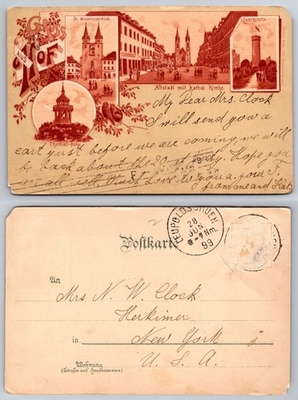 Gruss aus
Hof
St. Michaeliskirche
Altstadt mit kathol. Kirche
Theresienstein
My Dear Mrs. Clock
I will send you a
card just before we are coming we will
be back about the 20 of July. Hope you
are all well. Much Love to you a
from me and
LEUPOLDSGRUEN
28
JUN
99
Postkarte
An
Mrs N. W. Clock
Herkimer
in New York
U. S. A.
Wohnung
(Strasse und Hausnummer)